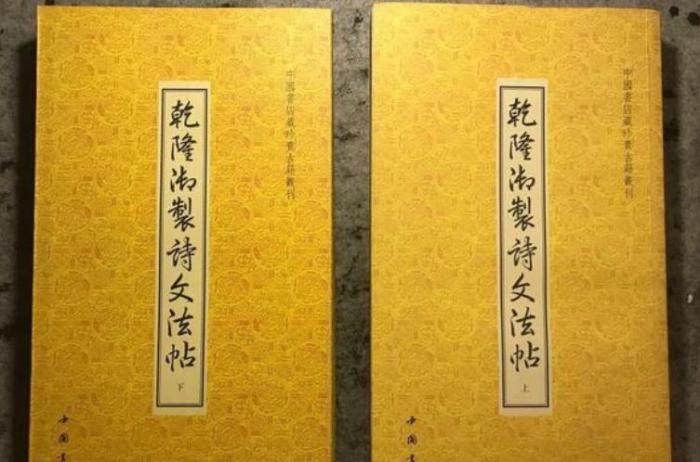 中國書店藏珍貴古籍叢刊
乾隆御製詩文法帖
上
中國
中國書店藏珍貴古籍叢刊
乾隆御製詩文法帖
下
中國